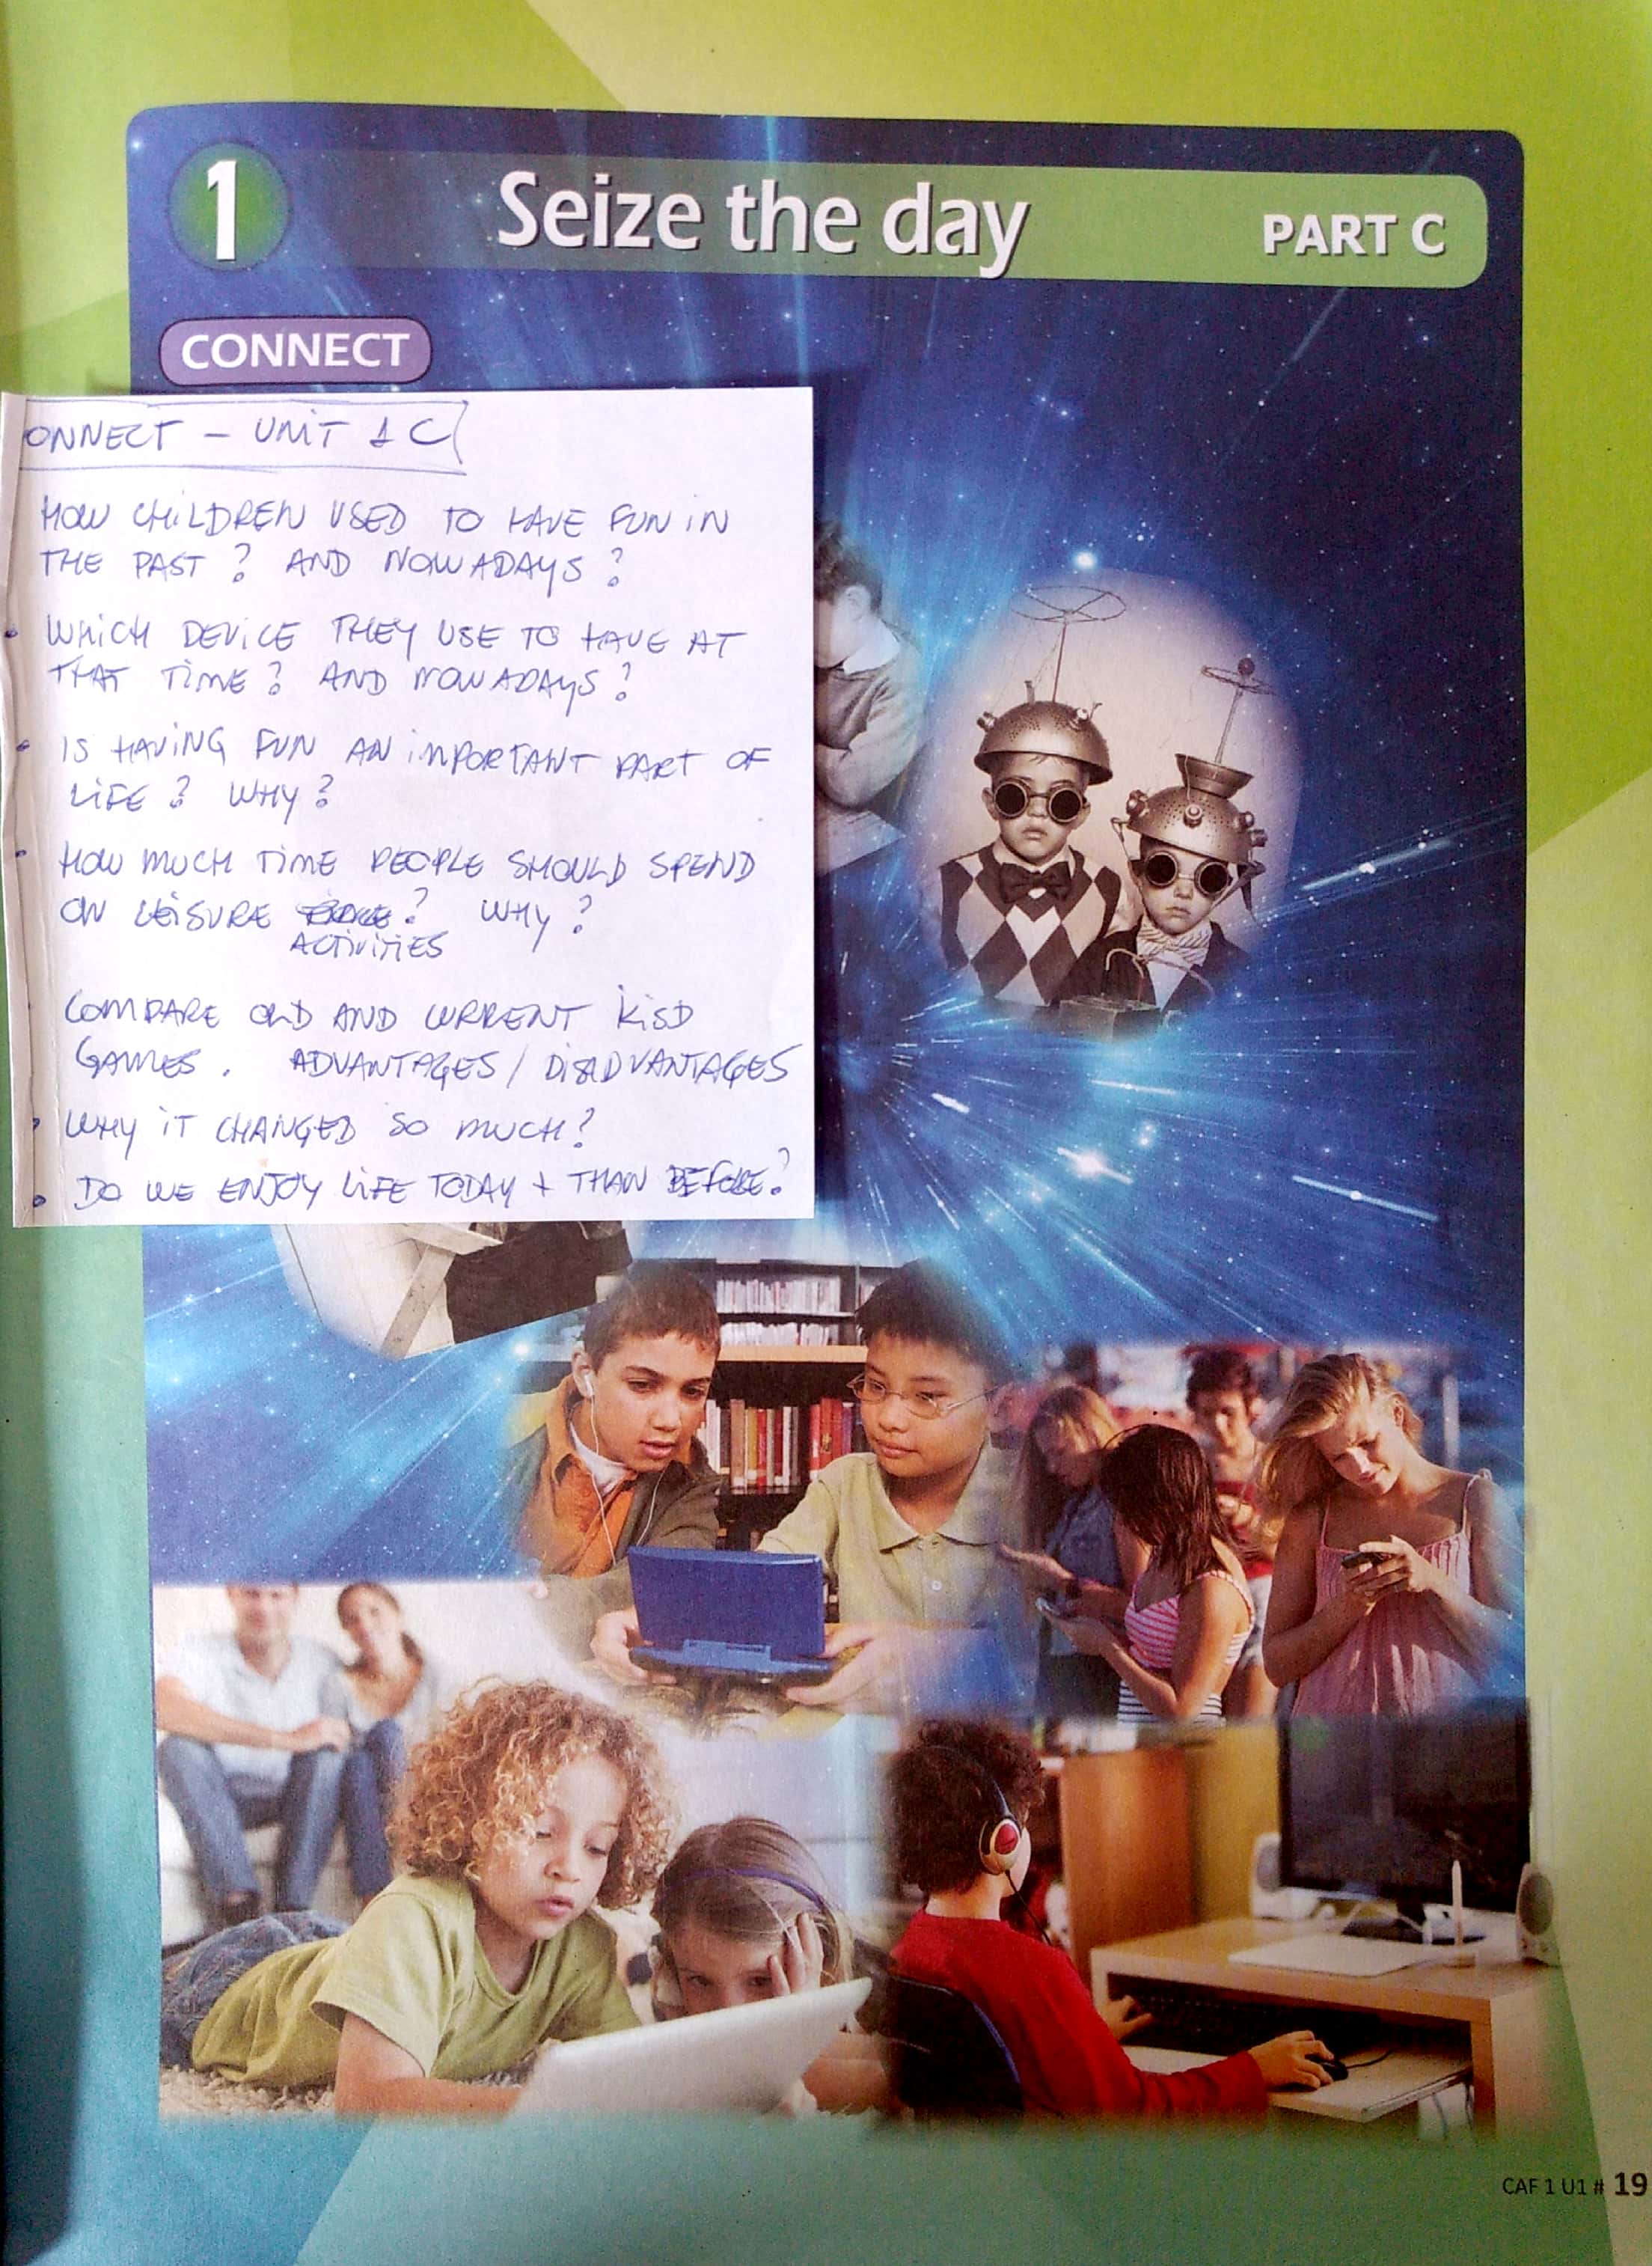 1
Seize the day
PART C
CONNECT
ONNECT - UNIT 1 C
HOW CHILDREN USED TO HAVE FUN IN
THE PAST? AND NOWADAYS?
• WHICH DEVICE THEY USE TO HAVE AT
THAT TIME? AND NOWADAYS?
• IS HAVING FUN AN IMPORTANT PART OF
LIFE? WHY?
• HOW MUCH TIME PEOPLE SHOULD SPEND
ON LEISURE ? WHY?
ACTIVITIES
COMPARE OLD AND CURRENT KISD
GAMES. ADVANTAGES / DISADVANTAGES
• WHY IT CHANGED SO MUCH?
• DO WE ENJOY LIFE TODAY + THAN BEFORE?
CAF 1 U1 # 19